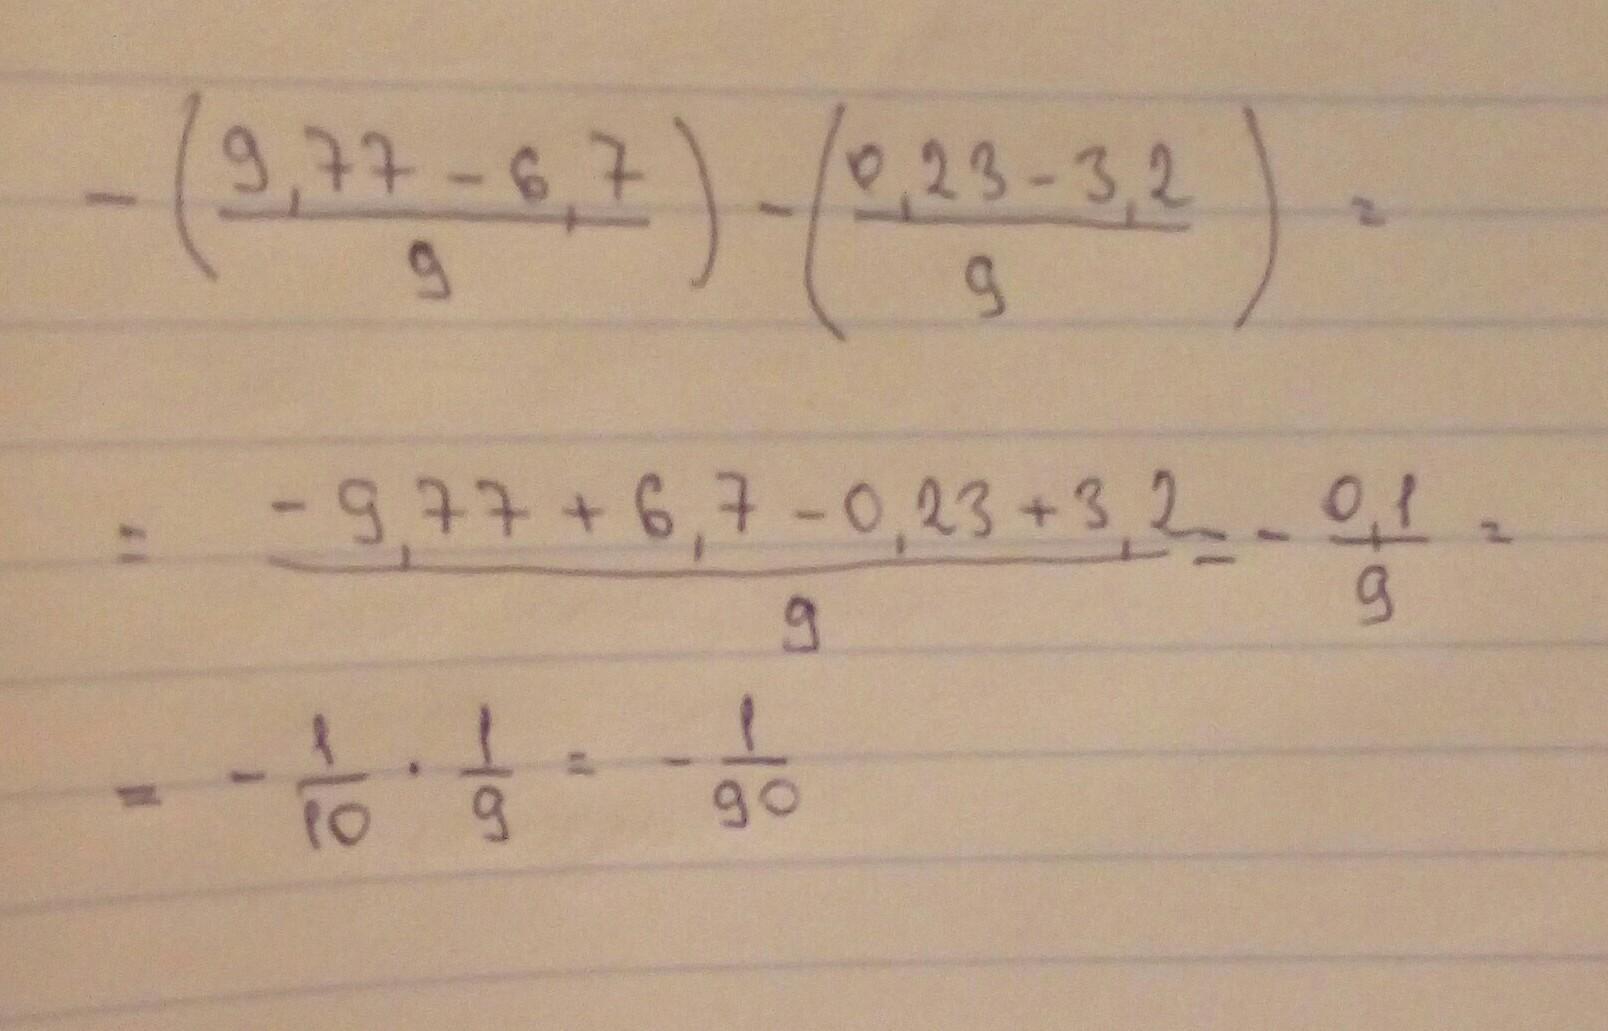 - (9,77 - 6,7 / 9) - (0,23 - 3,2 / 9) =
= -9,77 + 6,7 - 0,23 + 3,2 / 9 = - 0,1 / 9 =
= - 1/10 · 1/9 = - 1/90